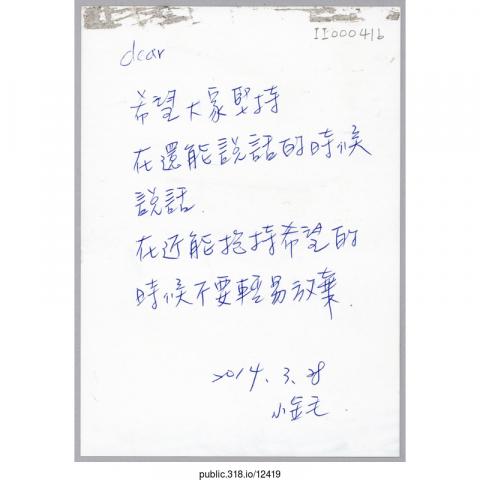 II000416
dear
希望大家堅持
在還能說話的時候
說話.
在还能抱持希望的
時候不要輕易放棄.
2014.3.28
小金毛.
public.318.io/12419